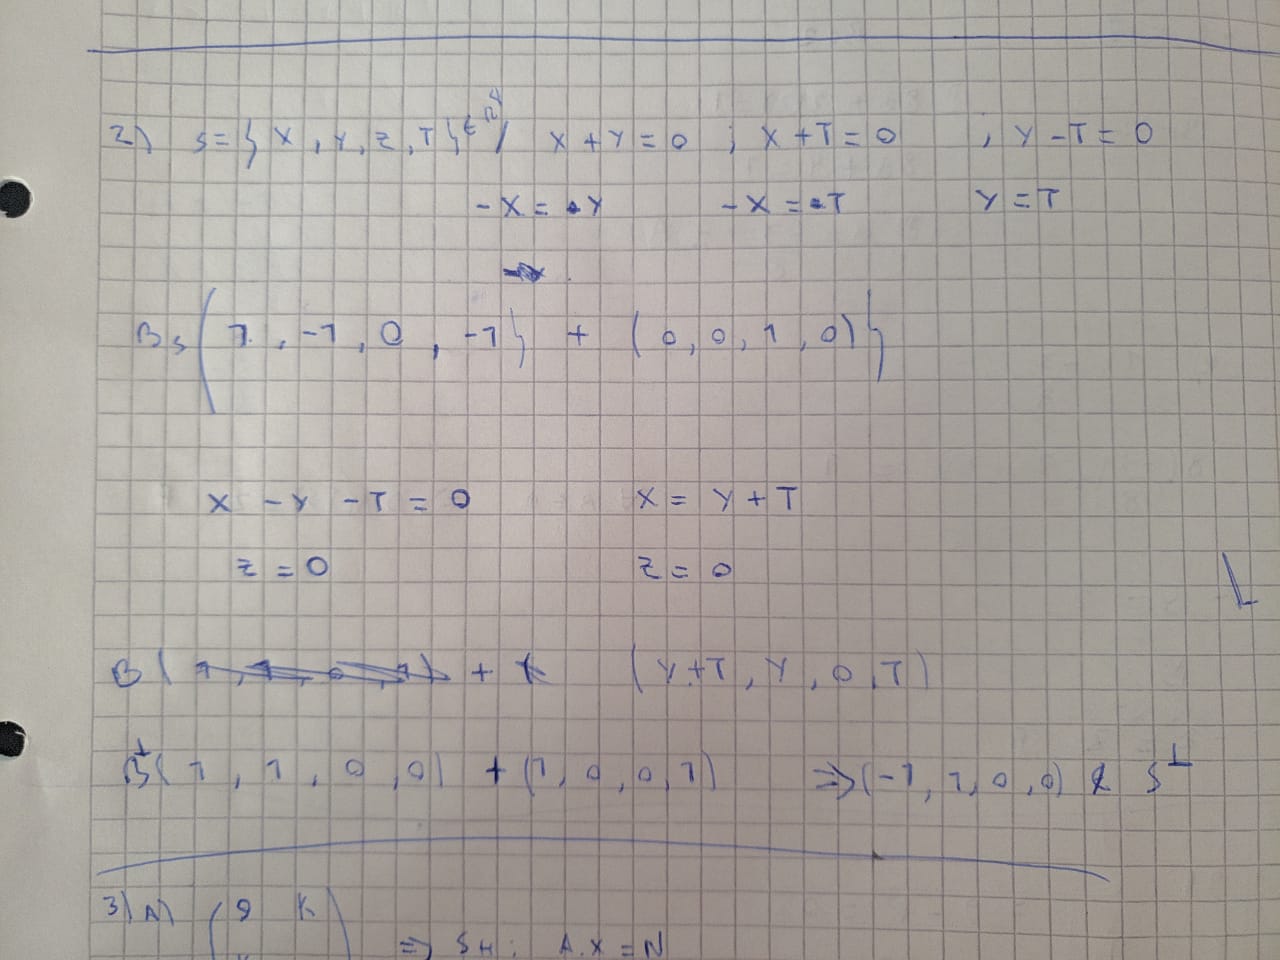 2) S = { X , Y , Z , T } ∈ R⁴ / X + Y = 0 ; X + T = 0 , Y - T = 0
- X = Y - X = T Y = T
Bs { 1 , -1 , 0 , -1 } + ( 0 , 0 , 1 , 0 ) }
X - Y - T = 0 X = Y + T
Z = 0 Z = 0
B ( + ( Y + T , Y , 0 , T )
B⊥ ( 1 , 1 , 0 , 0 ) + ( 1 , 0 , 0 , 1 ) ⇒ ( -1 , 1 , 0 , 0 ) ∉ S⊥
3) A) ( 9 K )
⇒ SH : A . X = N